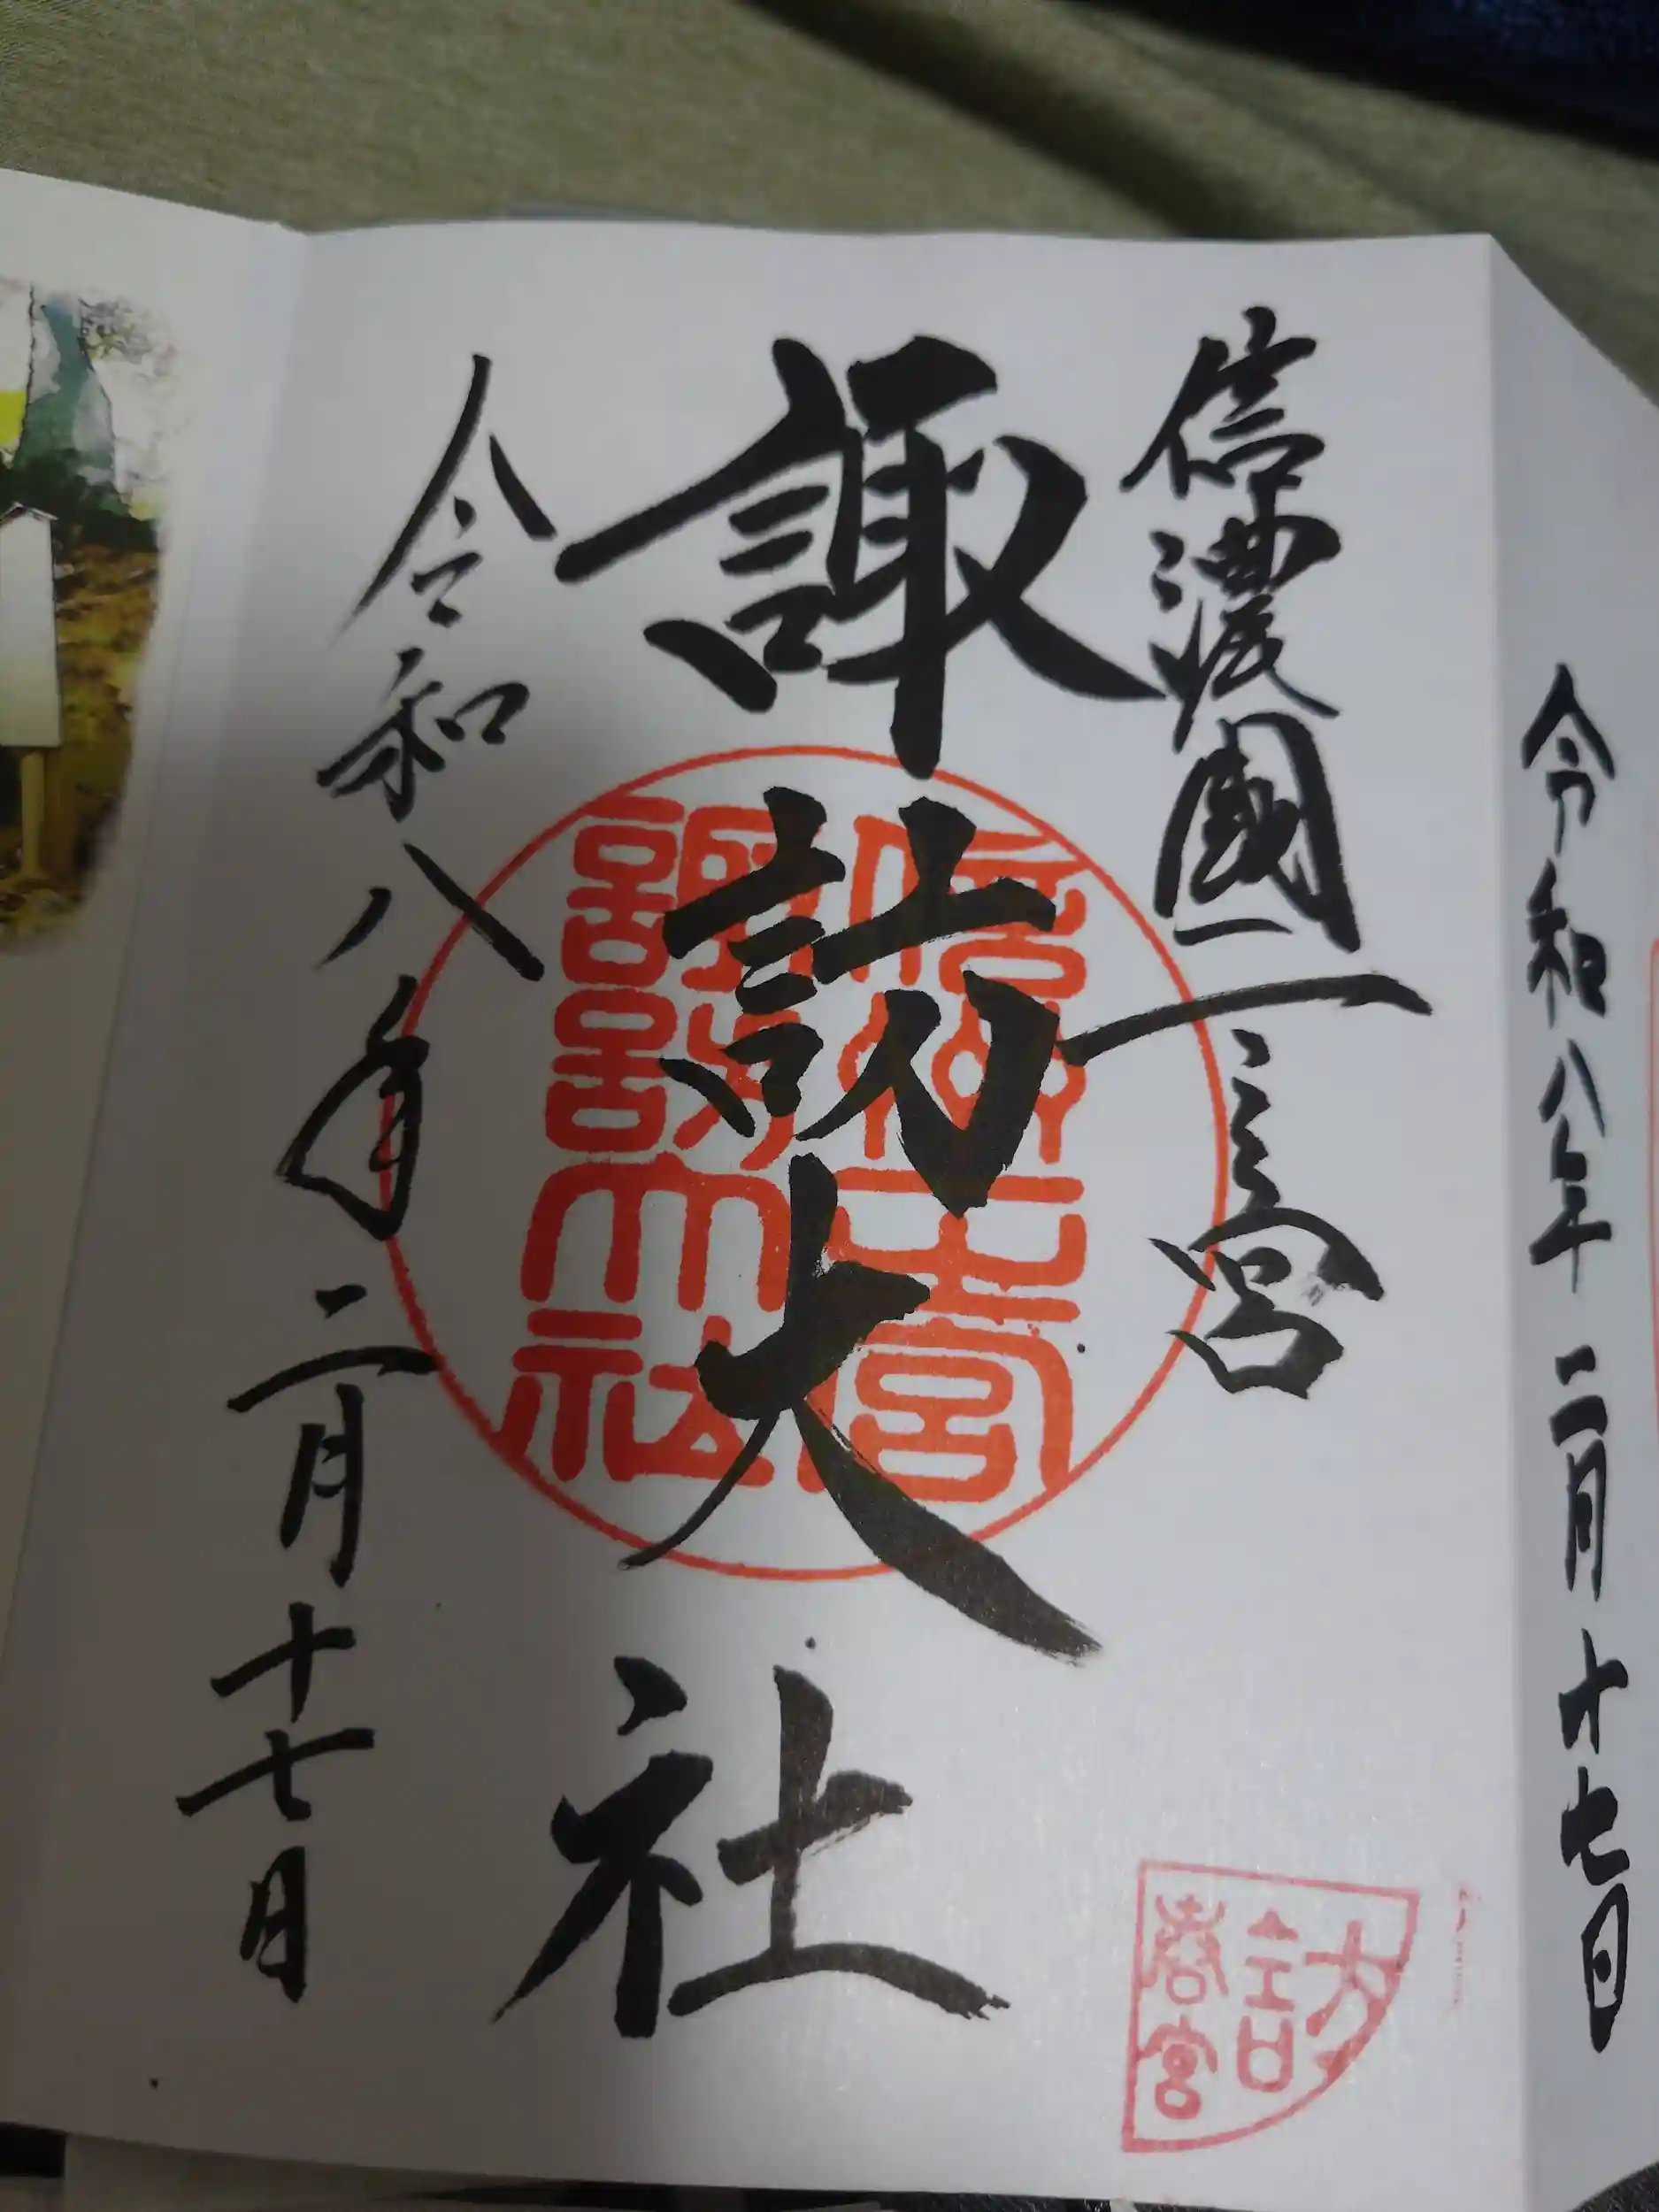 令和八年二月十七日
信濃國一之宮
諏訪大社
信州一宮
諏訪大社
令和八年二月十七日
訪
春宮